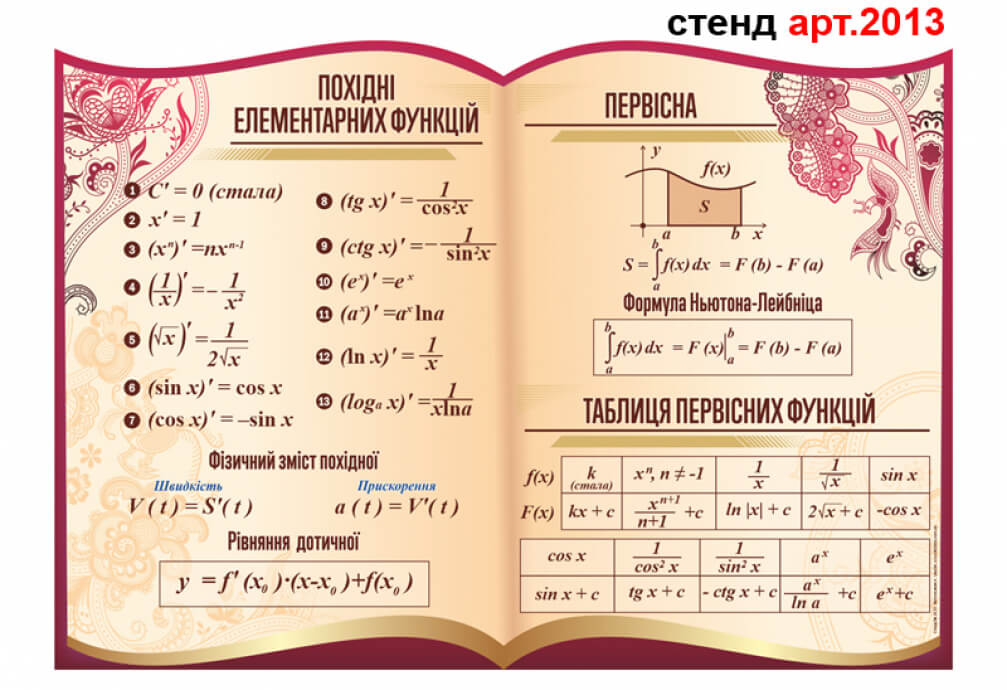 стенд арт.2013
ПОХІДНІ
ЕЛЕМЕНТАРНИХ ФУНКЦІЙ
1 C' = 0 (стала)
2 x' = 1
3 (xⁿ)' =nxⁿ⁻¹
4 (1/x)' = - 1/x²
5 (√x)' = 1/2√x
6 (sin x)' = cos x
7 (cos x)' = –sin x
8 (tg x)' = 1/cos²x
9 (ctg x)' = - 1/sin²x
10 (eˣ)' =eˣ
11 (aˣ)' =aˣ lna
12 (ln x)' = 1/x
13 (logₐ x)' = 1/xlna
Фізичний зміст похідної
Швидкість Прискорення
V ( t ) = S'( t ) a ( t ) = V'( t )
Рівняння дотичної
y = f' (x₀ )·(x-x₀ )+f(x₀ )
ПЕРВІСНА
y
f(x)
S
a b x
S = ∫ₐᵇ f(x) dx = F (b) - F (a)
Формула Ньютона-Лейбніца
∫ₐᵇ f(x) dx = F (x)|ₐᵇ = F (b) - F (a)
ТАБЛИЦЯ ПЕРВІСНИХ ФУНКЦІЙ
f(x) k (стала) xⁿ, n ≠ -1 1/x 1/√x sin x
F(x) kx + c xⁿ⁺¹/n+1 +c ln |x| + c 2√x + c -cos x
cos x 1/cos² x 1/sin² x aˣ eˣ
sin x + c tg x + c - ctg x + c aˣ/ln a +c eˣ+c